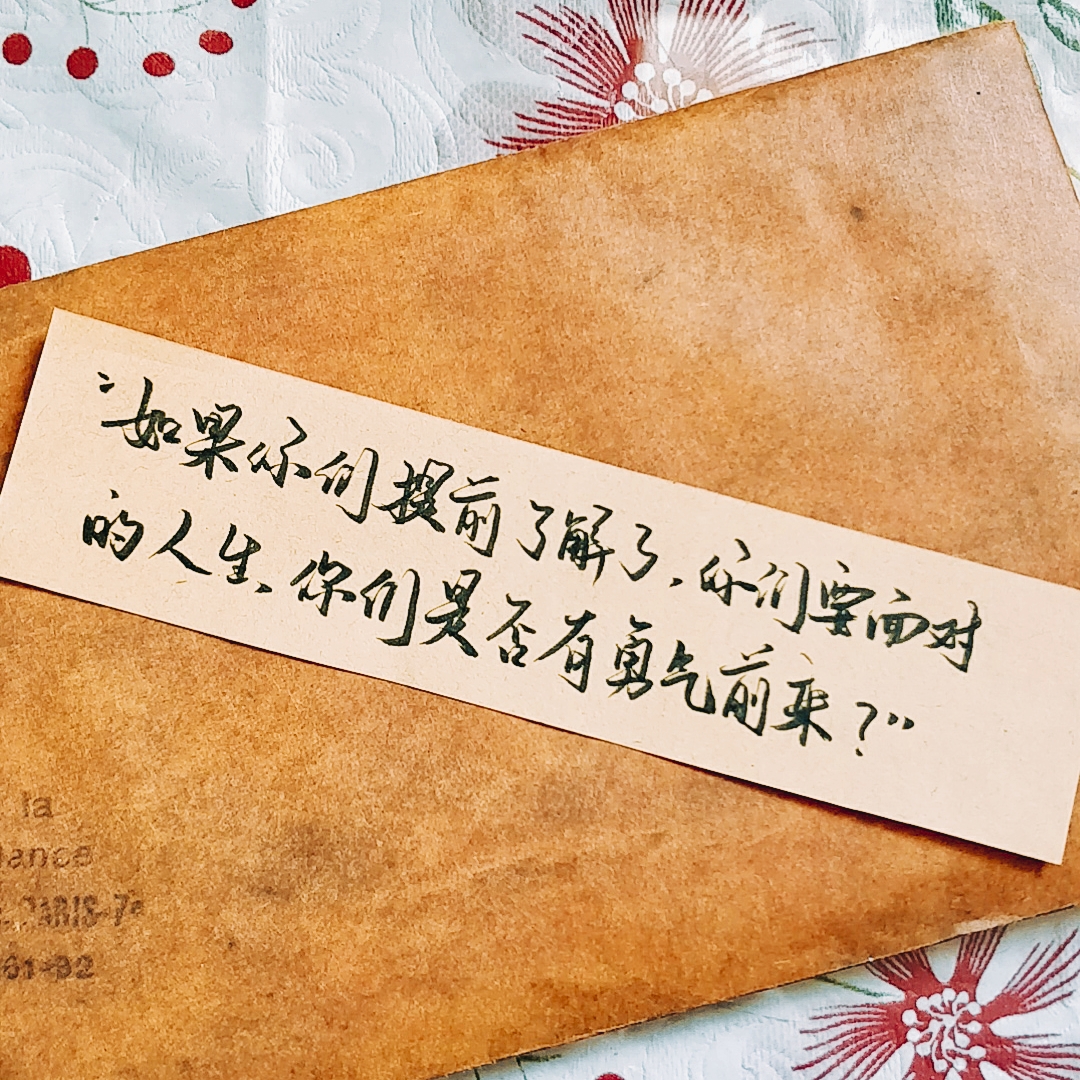 “如果你们提前了解了，你们要面对
的人生，你们是否有勇气前来？”
la
PARIS-7e
61-92